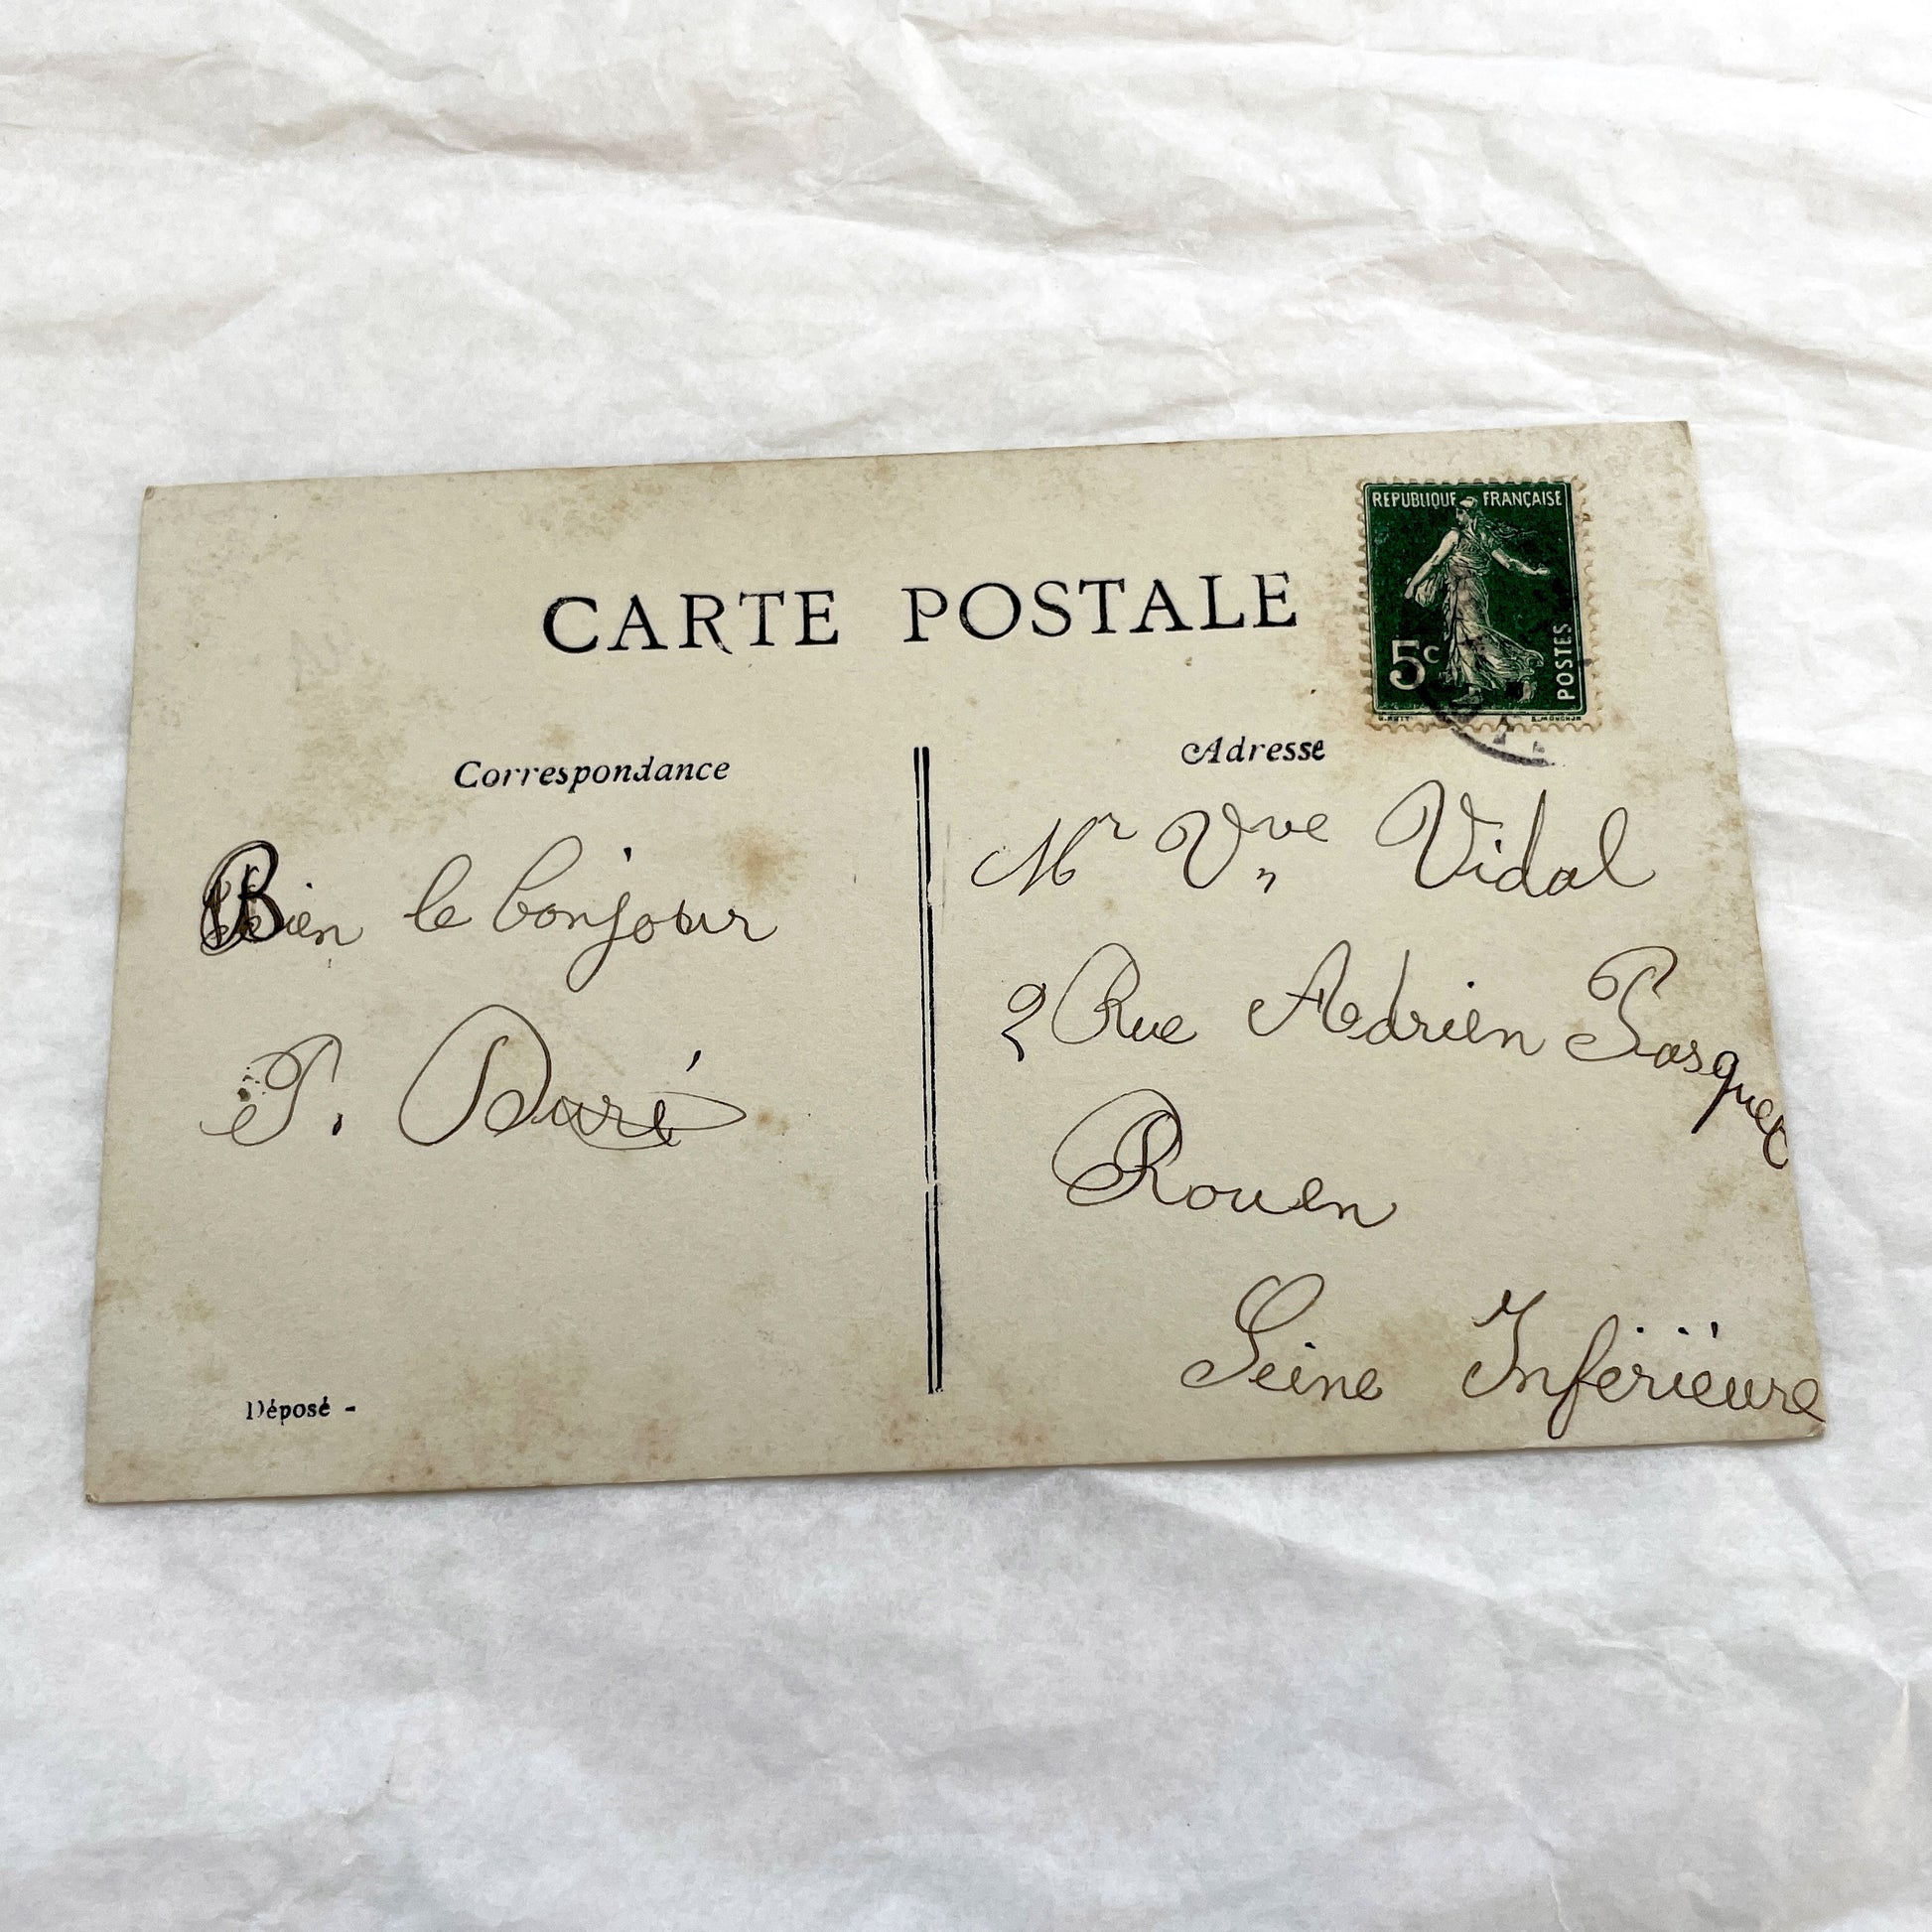 CARTE POSTALE
REPUBLIQUE FRANÇAISE
5c
POSTES
Correspondance
Bien le bonjour
P. Duré
Déposé -
Adresse
Mr Vve Vidal
2 Rue Adrien Pasquet
Rouen
Seine Inférieure